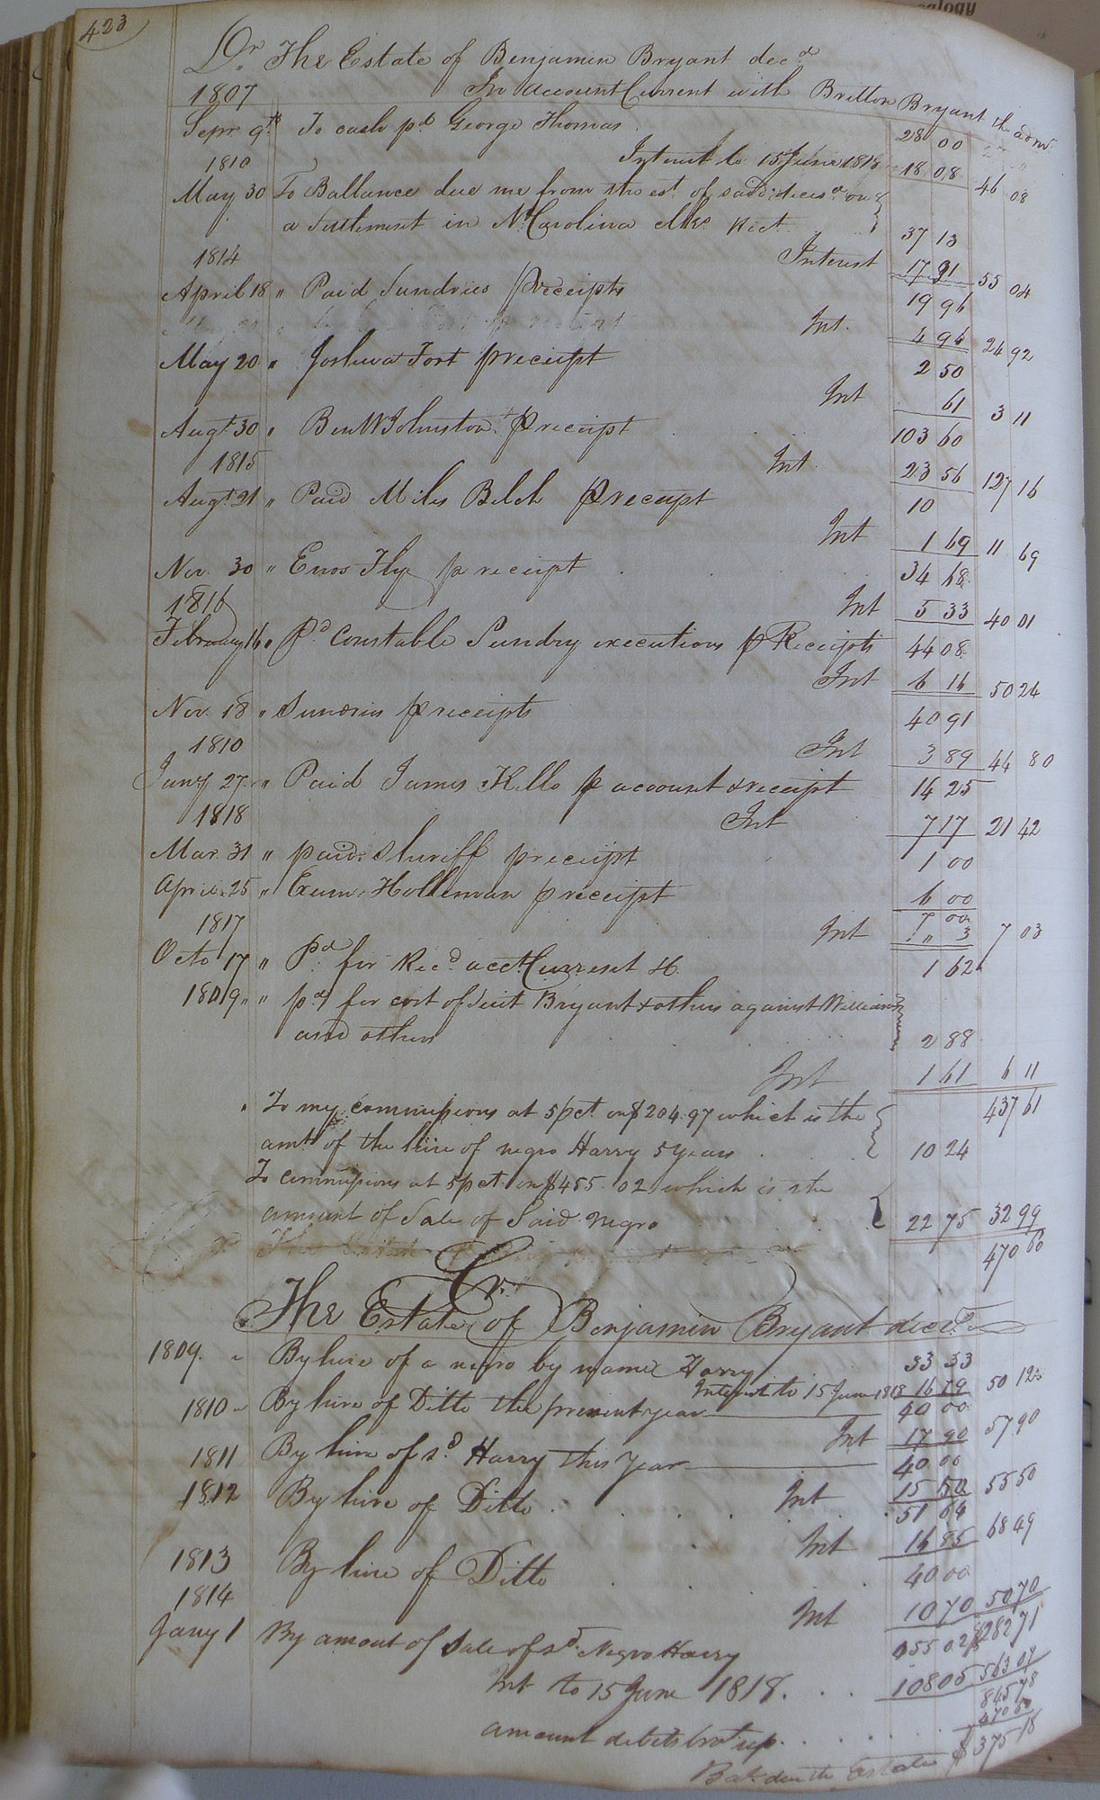 alogy
423
Dr. The Estate of Benjamin Bryant decd
In account Current with Britton Bryant the admr
1807
Sepr 9th To cash pd George Thomas 28 00
Interest to 15 June 1818 18 08 46 08
1810
May 30 To Ballance due me from the est. of said decsd on a
a Settlement in N. Carolina 37 13
Interest 17 91 55 04
1814
April 18 " Paid Sundries p receipts 19 96
Int. 4 96 24 92
May 20 " Joshua Fort p receipt 2 50
Int 61 3 11
Augt 30 " Ben W Johnston p receipt 103 60
Int 23 56 127 16
1815
Augt 21 " Paid Miles Belch p receipt 10
Int 1 69 11 69
Nov. 30 " Enos Fly p receipt 34 68
Int 5 33 40 01
1816
February 16 " Pd Constable Sundry executions p Receipts 44 08
Int 6 16 50 24
Nov. 18 " Sundries p receipts 40 91
Int 3 89 44 80
1810
Jany 27 " Paid James Kello p account & receipt 14 25
Int 7 17 21 42
1818
Mar. 31 " paid Sheriff p receipt 1 00
April 25 " Exum Holleman p receipt 6 00
7 00
Int " 3 7 03
1817
Octo 17 " Pd for Recd acct Current 1 62
1809 " " pd for cost of Suit Bryant & others against Williams
and others 2 88
Int 1 61 6 11
437 61
" To my commissions at 5 pct. on $204.97 which is the
amt of the hire of negro Harry 5 years 10 24
To commissions at 5 pct. on $455.02 which is the
amount of Sale of Said negro 22 75 32 99
470 60
Cr.
The Estate of Benjamin Bryant decd
1809. " By hire of a negro by name Harry 33 33
Interest to 15 June 1818 16 79 50 12
1810 " By hire of Ditto the present year 40 00
Int 17 90 57 90
1811 By hire of sd Harry this Year 40 00
Int 15 50 55 50
1812 By hire of Ditto 51 64
Int 16 85 68 49
1813 By hire of Ditto 40 00
Int 10 70 50 70
282 71
1814
Jany 1 By amount of Sale of sd Negro Harry 455 02
Int to 15 June 1818 108 05 563 07
845 78
amount debits brot up 470 60
Bal. due the Estate $375 18